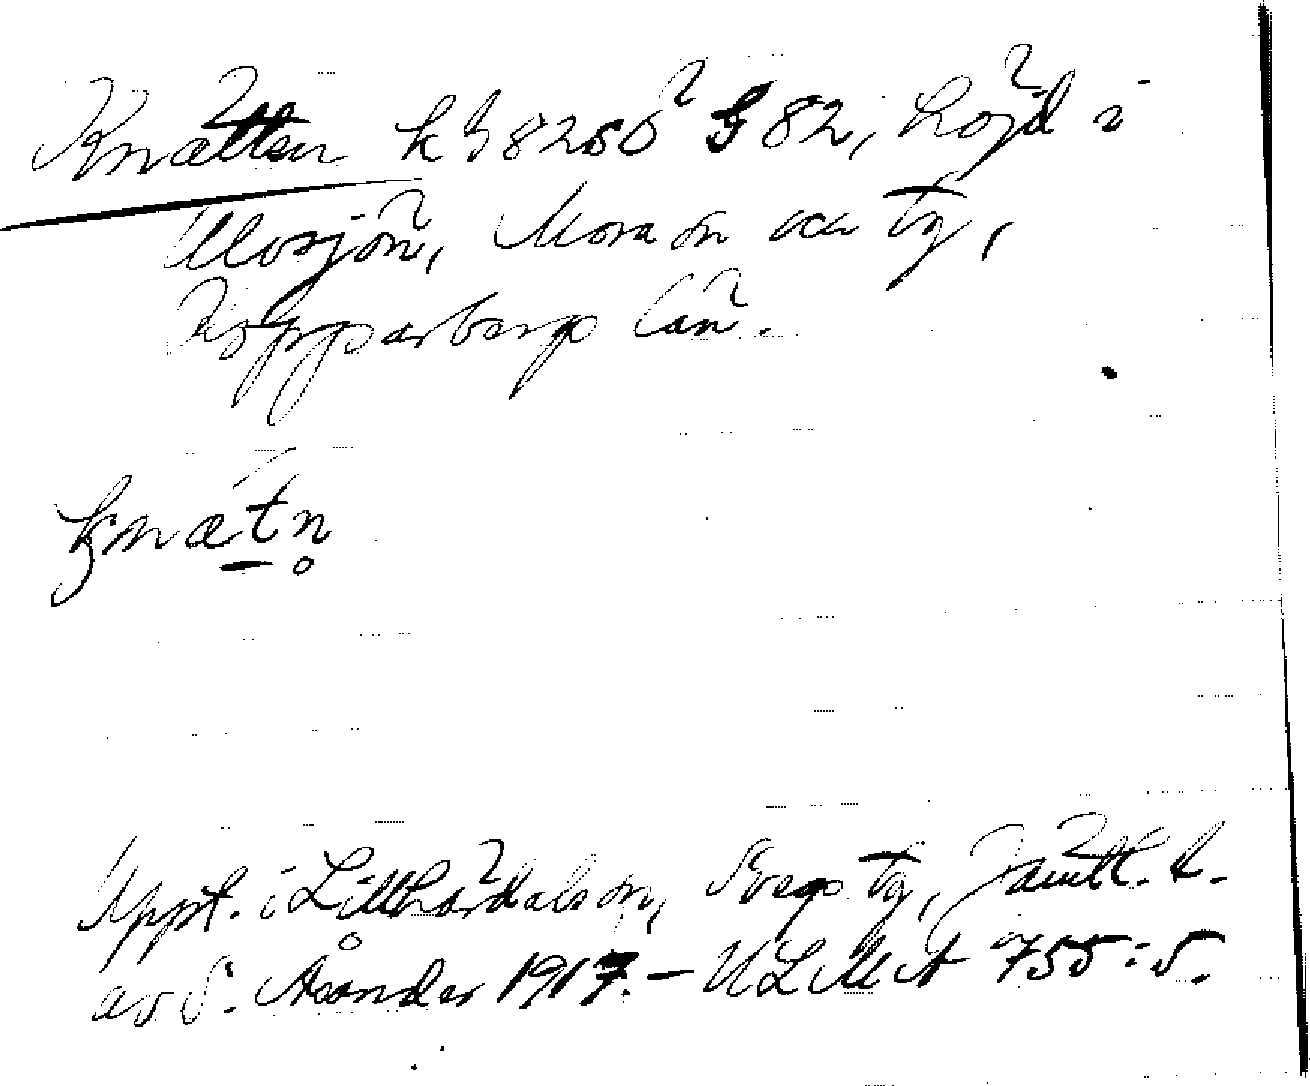 Knätten kb 8256 ö G 82, höjd i
Ulvsjön, Mora sn och tg,
Kopparbergs län.
knætn̥
Uppt. i Lillhärdals sn, Svegs tg, Jämtl. l.
av S. Åsander 1917. – ULMA 755:5.